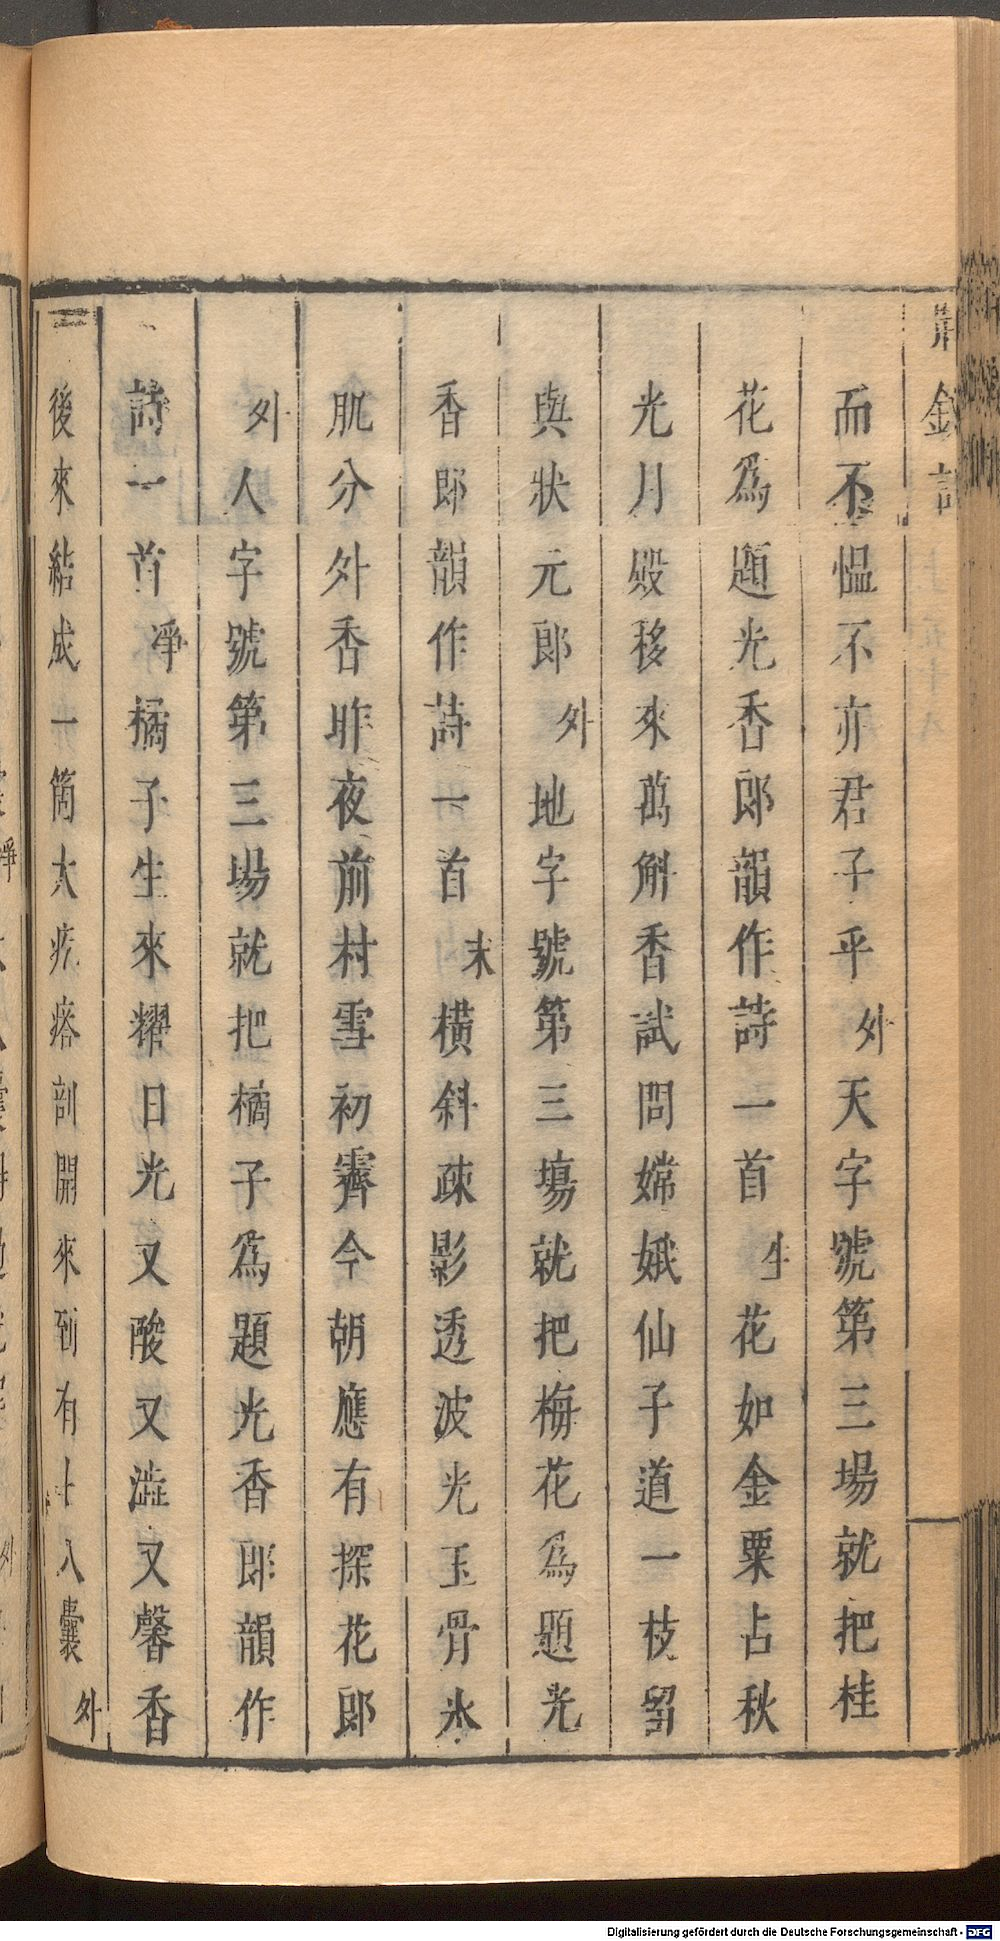 而不慍不亦君子乎外天字號第三場就把桂
花為題光香郎韻作詩一首生花如金粟占秋
光月殿移來萬斛香試問嫦娥仙子道一枝留
與狀元郎外地字號第三塲就把梅花為題光
香郎韻作詩一首末橫斜疎影透波光玉骨氷
肌分外香昨夜前村雪初霽今朝應有探花郎
外人字號第三場就把橘子為題光香郎韻作
詩一首凈橘子生來耀日光又酸又澁又馨香
後來結成一箇大疙瘩剖開來到有十八囊外
Digitalisierung gefördert durch die Deutsche Forschungsgemeinschaft - DFG